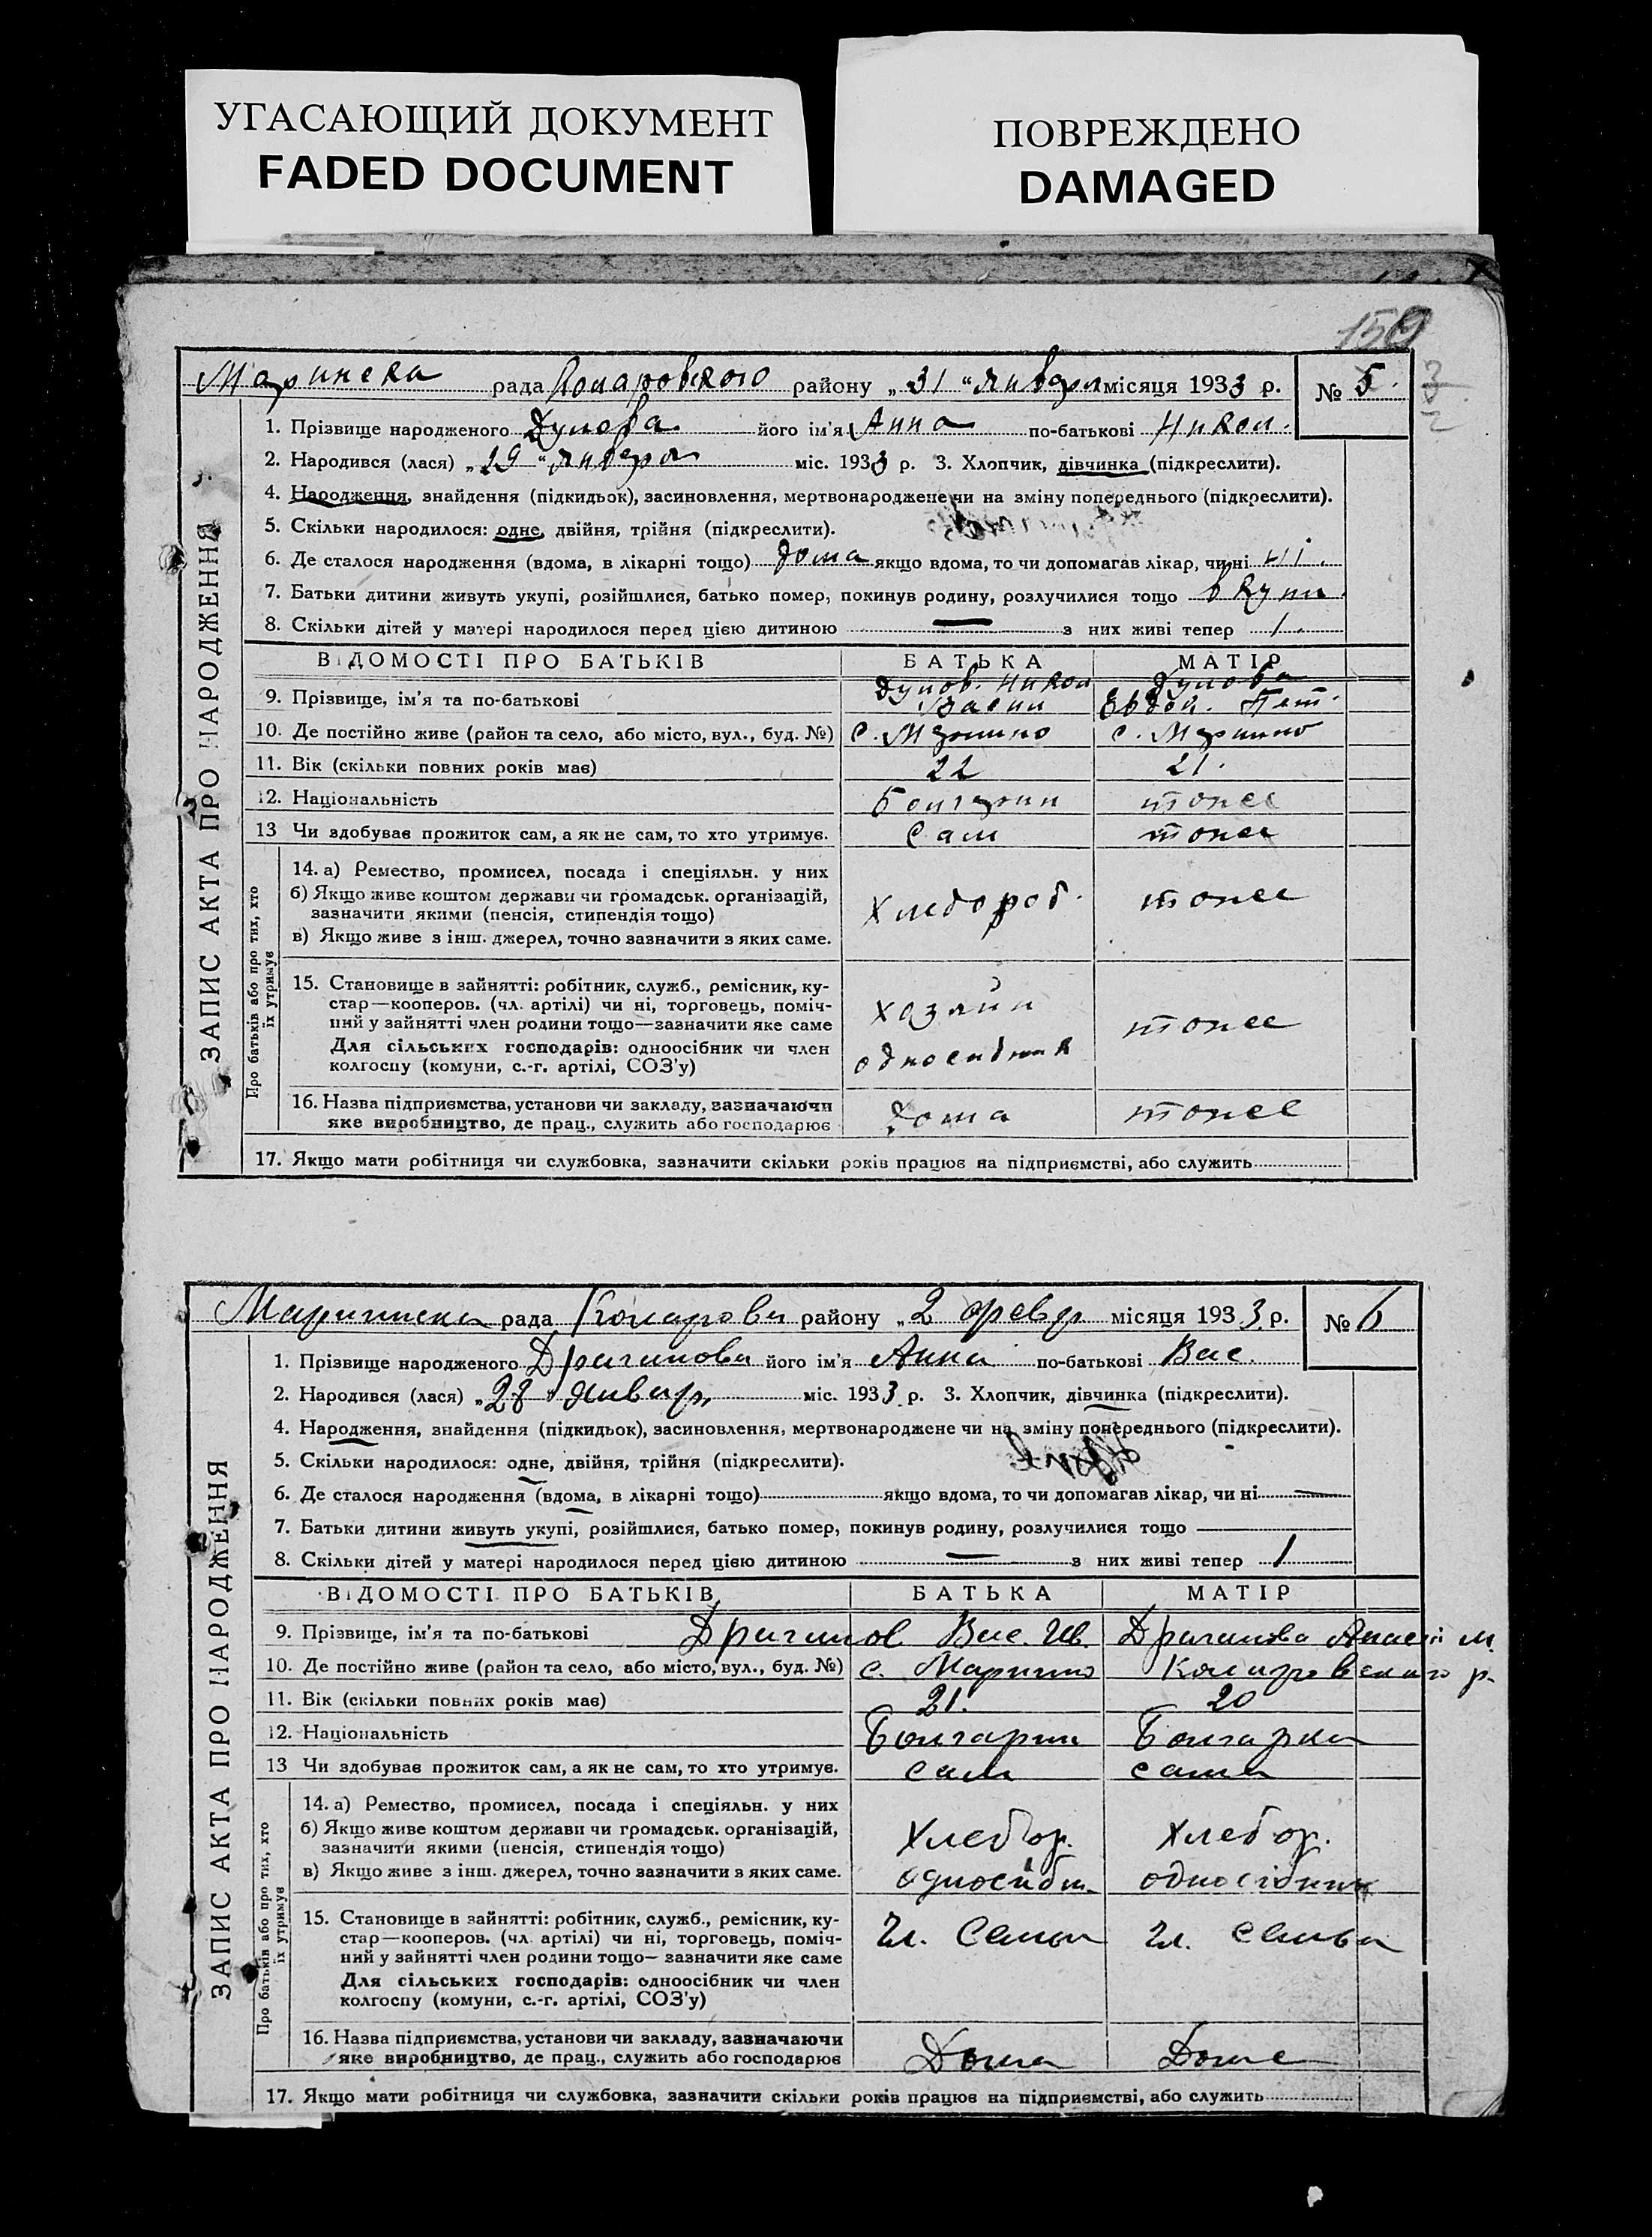 УГАСАЮЩИЙ ДОКУМЕНТ
FADED DOCUMENT
ПОВРЕЖДЕНО
DAMAGED
150
ЗАПИС АКТА ПРО НАРОДЖЕННЯ
Маринска рада Коларовского району „31“ января місяця 1933 р. № 5.
1. Прізвище народженого Дулова його ім'я Анна по-батькові Никол.
2. Народився (лася) „29“ января міс. 1933 р. 3. Хлопчик, дівчинка (підкреслити).
4. Народження, знайдення (підкидьок), засиновлення, мертвонароджене чи на зміну попереднього (підкреслити).
5. Скільки народилося: одне, двійня, трійня (підкреслити).
6. Де сталося народження (вдома, в лікарні тощо) дома якщо вдома, то чи допомагав лікар, чи ні ні.
7. Батьки дитини живуть укупі, розійшлися, батько помер, покинув родину, розлучилися тощо вкупи
8. Скільки дітей у матері народилося перед цією дитиною — з них живі тепер 1.
ВІДОМОСТІ ПРО БАТЬКІВ БАТЬКА МАТІР
9. Прізвище, ім'я та по-батькові Дулов. Никол Васил Дулова Евдок. Пет.
10. Де постійно живе (район та село, або місто, вул., буд. №) с. Марино с. Марино
11. Вік (скільки повних років має) 22 21.
12. Національність Болгарин тоже
13 Чи здобуває прожиток сам, а як не сам, то хто утримує. Сам тоже
Про батьків або про тих, хто їх утримує
14. а) Ремество, промисел, посада і спеціяльн. у них
б) Якщо живе коштом держави чи громадськ. організацій,
зазначити якими (пенсія, стипендія тощо) Хлебороб. тоже
в) Якщо живе з інш. джерел, точно зазначити з яких саме.
15. Становище в зайнятті: робітник, служб., ремісник, ку-
стар—кооперов. (чл. артілі) чи ні, торговець, поміч-
ний у зайнятті член родини тощо—зазначити яке саме хозяин тоже
Для сільських господарів: одноосібник чи член
колгоспу (комуни, с.-г. артілі, СОЗ'у) односибник
16. Назва підприємства, установи чи закладу, зазначаючи
яке виробництво, де прац., служить або господарює дома тоже
17. Якщо мати робітниця чи службовка, зазначити скільки років працює на підприємстві, або служить
ЗАПИС АКТА ПРО НАРОДЖЕННЯ
Маринска рада Коларовск району „2 февр місяця 1933 р. № 6
1. Прізвище народженого Драганова його ім'я Анна по-батькові Вас.
2. Народився (лася) „28“ январ міс. 1933 р. 3. Хлопчик, дівчинка (підкреслити).
4. Народження, знайдення (підкидьок), засиновлення, мертвонароджене чи на зміну попереднього (підкреслити).
5. Скільки народилося: одне, двійня, трійня (підкреслити).
6. Де сталося народження (вдома, в лікарні тощо) якщо вдома, то чи допомагав лікар, чи ні —
7. Батьки дитини живуть укупі, розійшлися, батько помер, покинув родину, розлучилися тощо
8. Скільки дітей у матері народилося перед цією дитиною — з них живі тепер 1
ВІДОМОСТІ ПРО БАТЬКІВ БАТЬКА МАТІР
9. Прізвище, ім'я та по-батькові Драганов Вас. Ив. Драганова Анасті м.
10. Де постійно живе (район та село, або місто, вул., буд. №) с. Марино Коларовского р.
11. Вік (скільки повних років має) 21. 20
12. Національність Болгарин Болгарка
13 Чи здобуває прожиток сам, а як не сам, то хто утримує. сам сама
Про батьків або про тих, хто їх утримує
14. а) Ремество, промисел, посада і спеціяльн. у них
б) Якщо живе коштом держави чи громадськ. організацій,
зазначити якими (пенсія, стипендія тощо) Хлебор. Хлебор.
в) Якщо живе з інш. джерел, точно зазначити з яких саме. односібн. односібник
15. Становище в зайнятті: робітник, служб., ремісник, ку-
стар—кооперов. (чл. артілі) чи ні, торговець, поміч- Чл. Семьи Чл. семьи
ний у зайнятті член родини тощо—зазначити яке саме
Для сільських господарів: одноосібник чи член
колгоспу (комуни, с.-г. артілі, СОЗ'у)
16. Назва підприємства, установи чи закладу, зазначаючи
яке виробництво, де прац., служить або господарює Дома Доме
17. Якщо мати робітниця чи службовка, зазначити скільки років працює на підприємстві, або служить